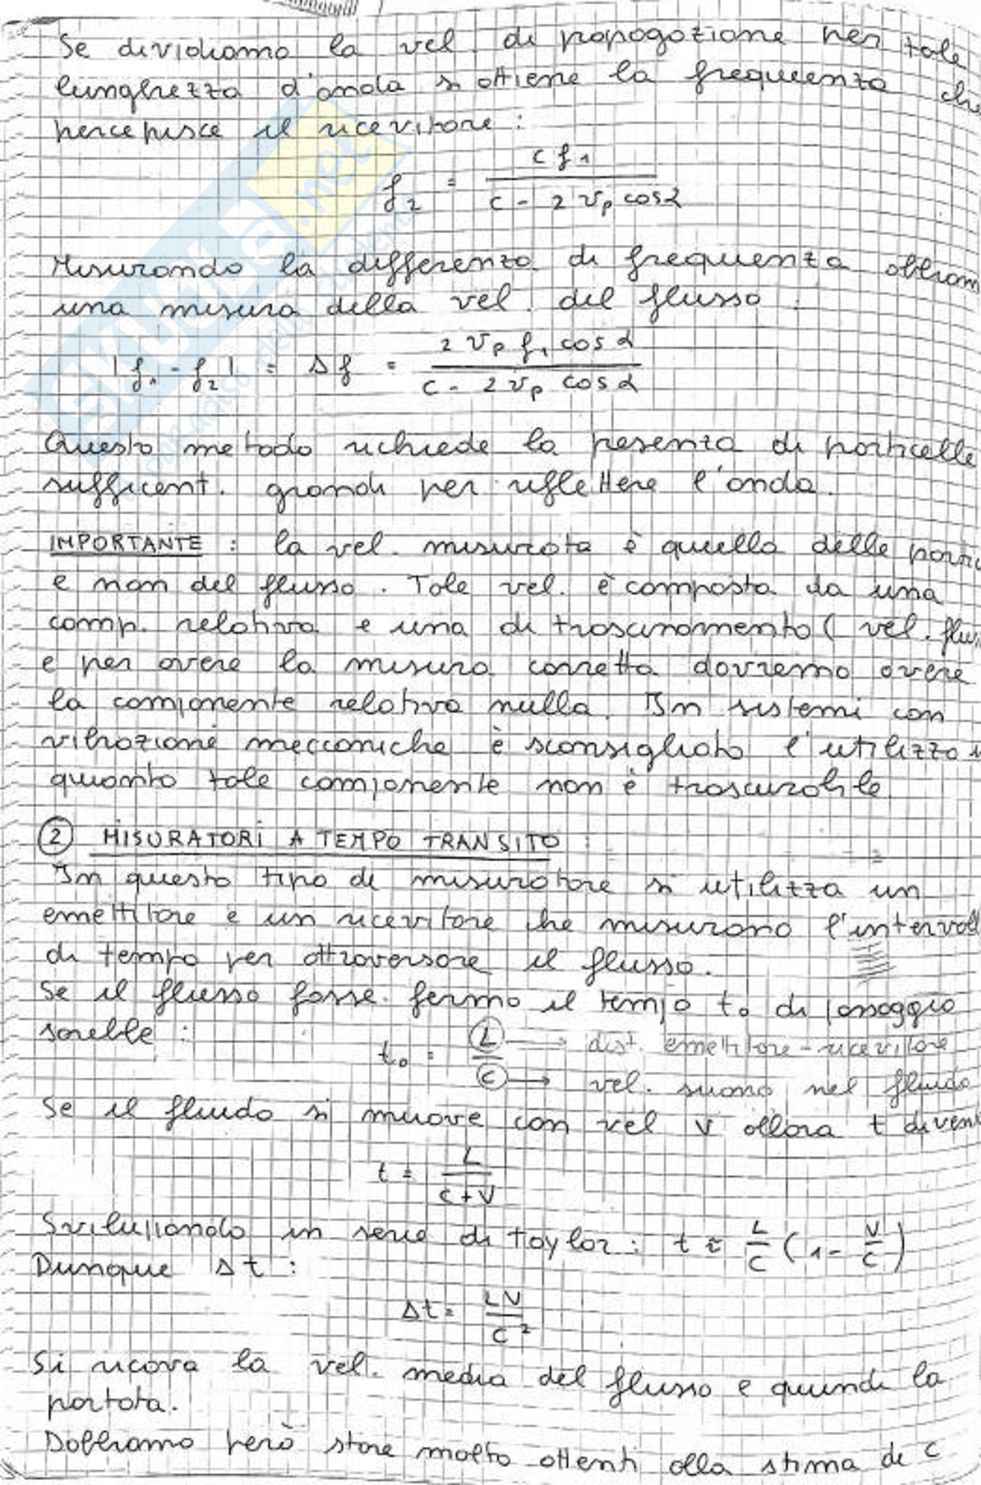 Se dividiamo la vel. di propagazione per tale
lunghezza d'onda si ottiene la frequenza che
percepisce il ricevitore:
f₂ = c f₁ / (c - 2 vₚ cosα)
Misurando la differenza di frequenza ottiam
una misura della vel. del flusso:
|f₁ - f₂| = Δf = 2 vₚ f₁ cosα / (c - 2 vₚ cosα)
Questo metodo richiede la presenza di particelle
sufficent. grandi per riflettere l'onda.
IMPORTANTE: la vel. misurata è quella delle partic
e non del flusso. Tale vel. è composta da una
comp. relativa e una di trascinamento (vel. flus
e per avere la misura corretta dovremo avere
la componente relativa nulla. In sistemi con
vibrazioni meccaniche è sconsigliato l'utilizzo i
quanto tale componente non è trascurabile.
② MISURATORI A TEMPO TRANSITO:
In questo tipo di misuratore si utilizza un
emettitore e un ricevitore che misurano l'intervall
di tempo per attraversare il flusso.
Se il flusso fosse fermo il tempo t₀ di passaggio
sarebbe:
t₀ = L / c
L → dist. emettitore-ricevitore
c → vel. suono nel fluido
Se il fluido si muove con vel V allora t diven
t = L / (c+V)
Sviluppando in serie di taylor: t ≈ L/C (1 - V/C)
Dunque Δt:
Δt = LV / C²
Si ricava la vel. media del flusso e quindi la
portata.
Dobbiamo però stare molto attenti alla stima di C